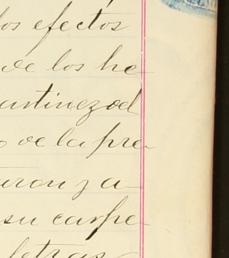 los efectos
de los he
artinez del
o de la pre
uron y a
su carpe
letras